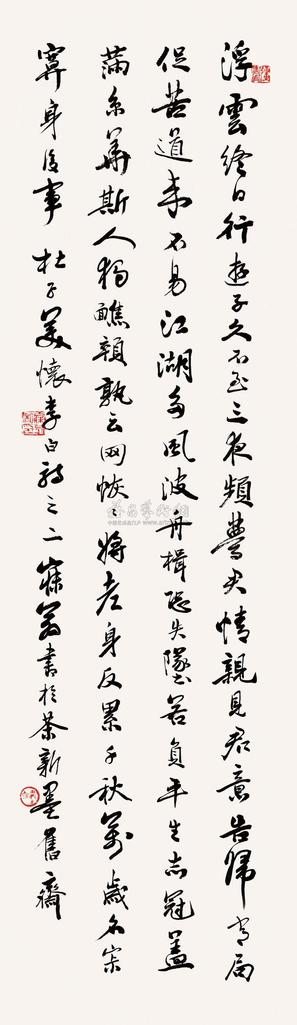 浮雲終日行遊子久不至三夜頻夢君情親見君意告歸常局
促苦道來不易江湖多風波舟楫恐失墜若負平生志冠蓋
滿京華斯人獨顦顇孰云网恢〻將老身反累千秋萬歲名寂
寞身後事 杜子美懷李白詩之二 寐翁書於茶新墨舊齋